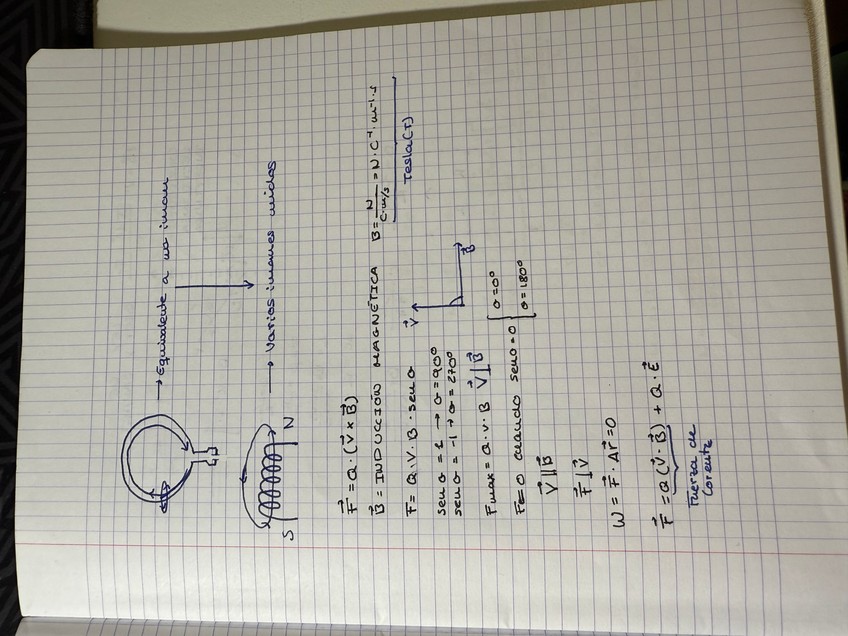 → Equivalente a un iman
S N → Varios imanes unidos
F = Q · (V × B)
B = INDUCCIÓN MAGNÉTICA B = N / C·m/s = N · C⁻¹ · m⁻¹ · s
Tesla (T)
F = Q · V · B · sen σ
V
B
sen σ = 1 → σ = 90º
sen σ = -1 → σ = 270º
Fmax = Q · V · B V ⊥ B
F = 0 cuando sen σ = 0 { σ = 0º
σ = 180º
V || B
F ⊥ V
W = F · Δr = 0
F = Q (V · B) + Q · E
Fuerza de
Lorentz